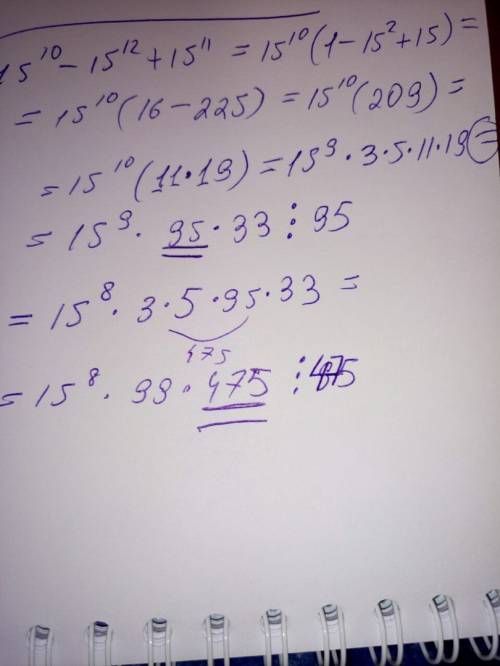 15¹⁰ - 15¹² + 15¹¹ = 15¹⁰(1 - 15² + 15) =
= 15¹⁰(16 - 225) = 15¹⁰(209) =
= 15¹⁰(11·19) = 15⁹·3·5·11·19 =
= 15⁹·95·33 ⋮ 95
= 15⁸·3·5·95·33 =
475
= 15⁸·99·475 ⋮ 475